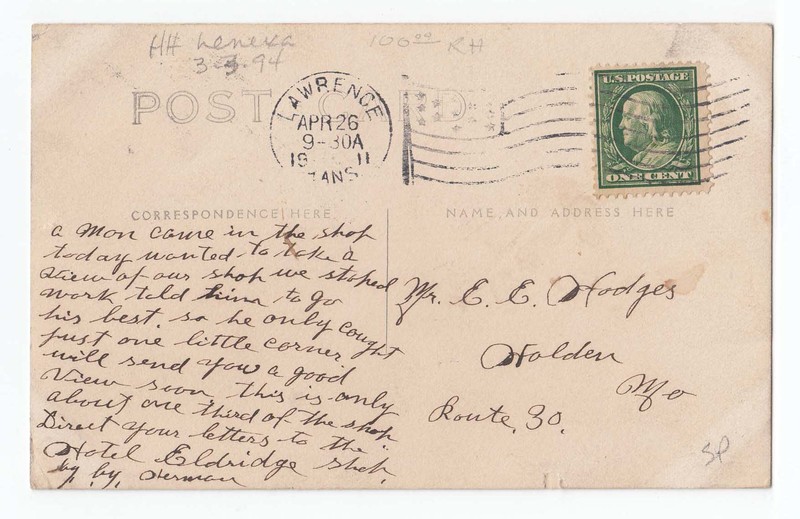 HH Lenexa
3-3-94
100.00 RH
POST CARD
LAWRENCE
APR 26
9-30A
1911
KANS.
U.S. POSTAGE
ONE CENT
CORRESPONDENCE HERE
a Mon came in the shop
today wanted to take a
view of our shop we stoped
work told him to go
his best. so he only cought
just one little corner
will send you a good
view soon, this is only
about one third of the shop
Direct your letters to the
Hotel Eldridge Shop.
by. by. Herman
NAME AND ADDRESS HERE
Mr. E. E. Hodges
Holden
Mo
Route. 30.
SP